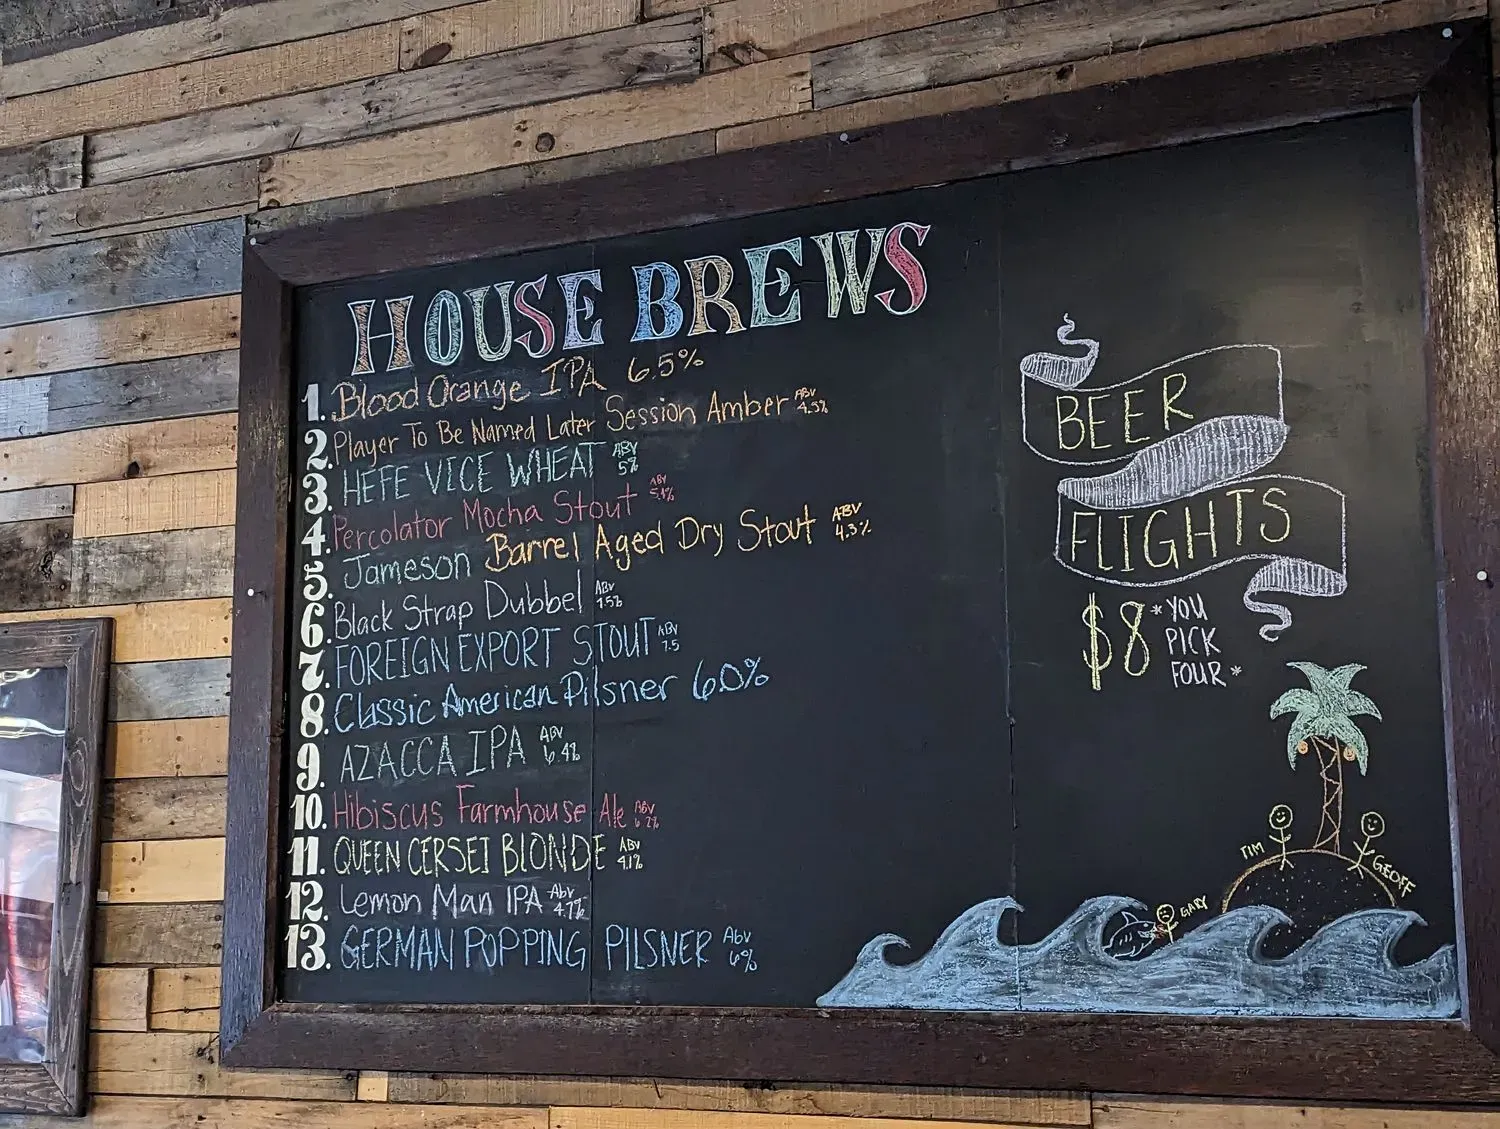 HOUSE BREWS
1. Blood Orange IPA 6.5%
2. Player To Be Named Later Session Amber ABV 4.5%
3. HEFE VICE WHEAT ABV 5%
4. Percolator Mocha Stout ABV 5.1%
5. Jameson Barrel Aged Dry Stout ABV 4.3%
6. Black Strap Dubbel ABV 7.5%
7. FOREIGN EXPORT STOUT ABV 7.5
8. Classic American Pilsner 6.0%
9. AZACCA IPA ABV 6.4%
10. Hibiscus Farmhouse Ale ABV 6.2%
11. QUEEN CERSEI BLONDE ABV 4.1%
12. Lemon Man IPA Abv 4.7%
13. GERMAN POPPING PILSNER Abv 6%
BEER
FLIGHTS
$8 *YOU
PICK
FOUR*
TIM
GEOFF
GARY